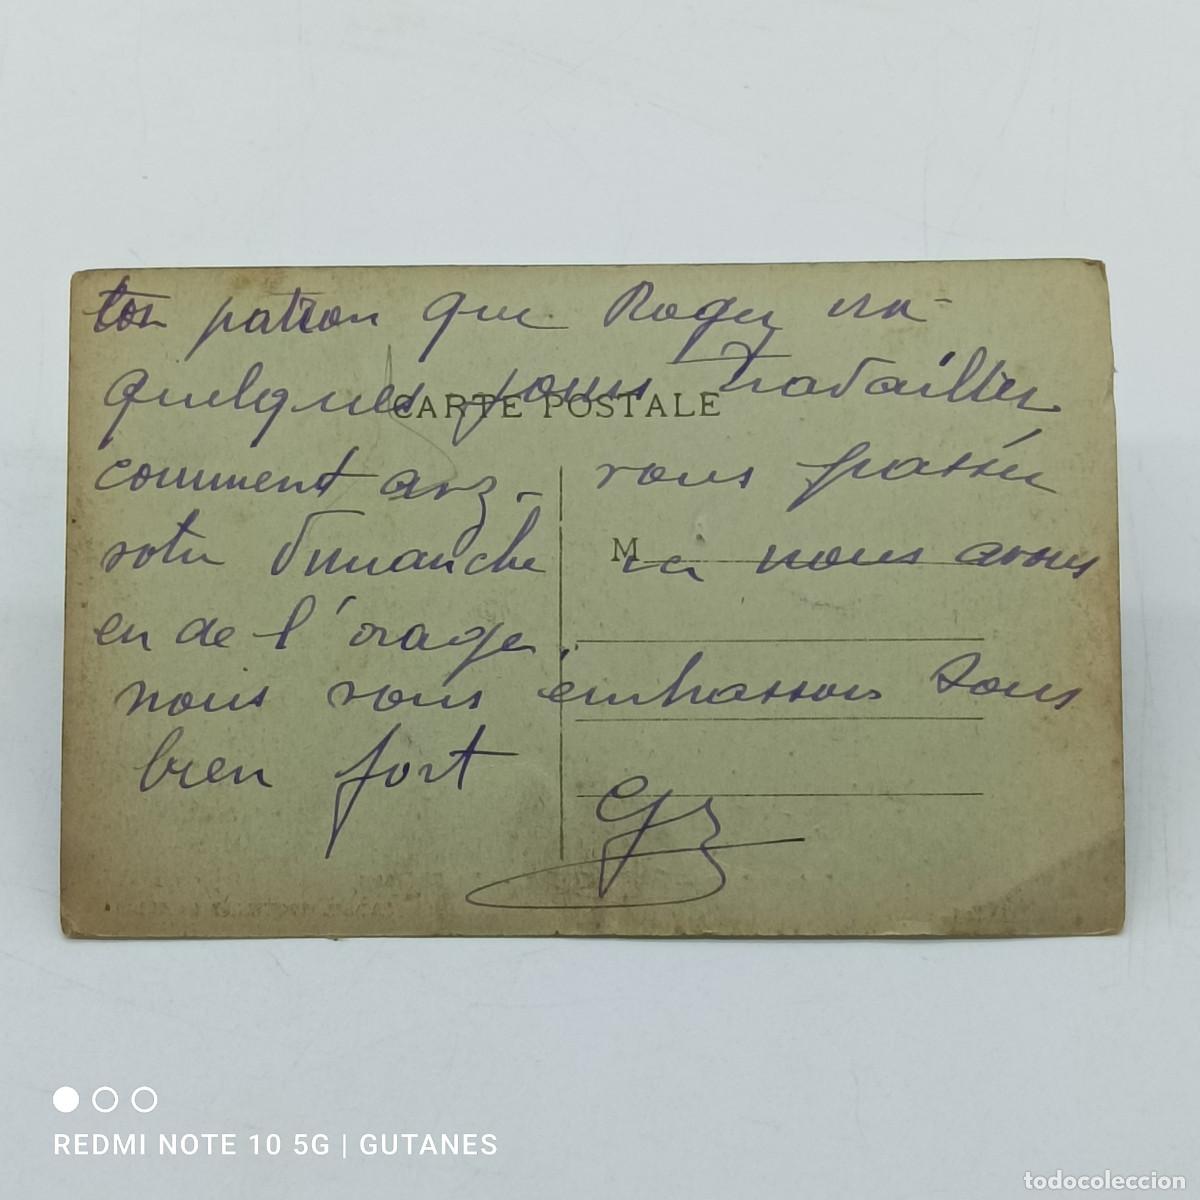 ton patron que Roger ira
quelques jours travailler
CARTE POSTALE
comment avez vous passée
M
votre Dimanche ici nous avons
eu de l'orage.
nous vous embrassons tous
bien fort
REDMI NOTE 10 5G | GUTANES
todocoleccion